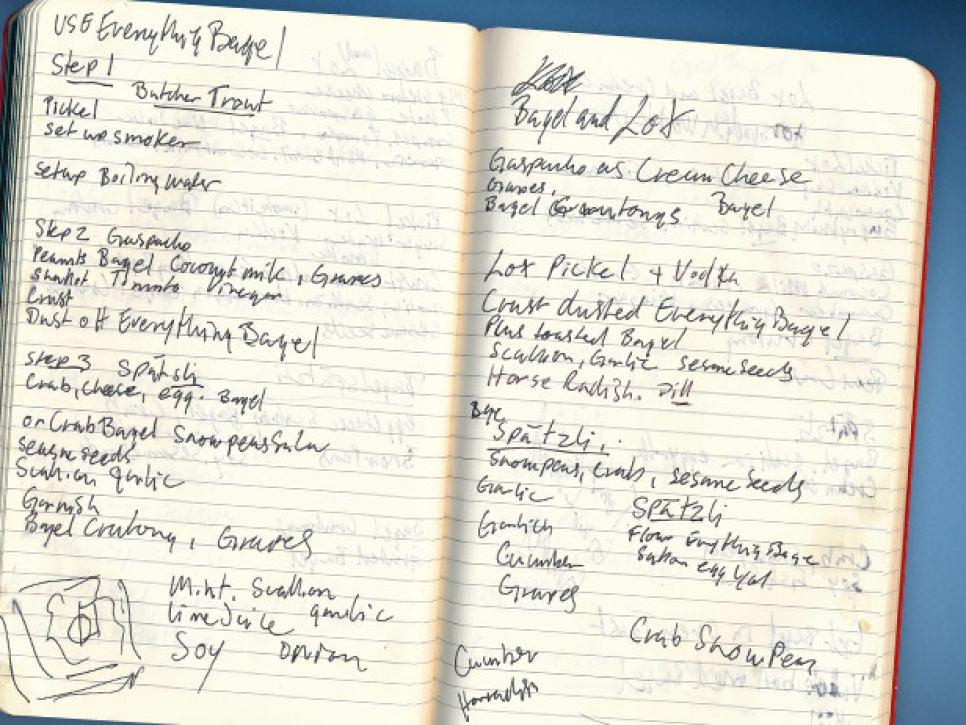 USE Everything Bagel
Step 1
Butcher Trout
Pickel
set up smoker
setup Boiling water
Step 2 Guspacho
Peanuts Bagel Coconut milk, Graves
Shallot Tomato Vinegar
Crust
Dust off Everything Bagel
Step 3 Spätzli
Crab, cheese, egg. Bagel
or Crab Bagel Snowpeas
sesame seeds
Scallion garlic
Garnish
Bagel Croutong, Graves
Mint, Scallion
lime Juice garlic
Soy onion
Bagel and Lox
Guspacho as Cream Cheese
Graves,
Bagel Croutongs Bagel
Lox Pickel + Vodka
Crust dusted Everything Bagel
Plus toasted Bagel
Scallion, Garlic sesame seeds
Horse Radish. Dill
Spätzli,
Snowpeas, Crab, sesame seeds
Garlic
Spätzli
Cucumber
Graves
egg
Crab Snow Pea
Cucumber